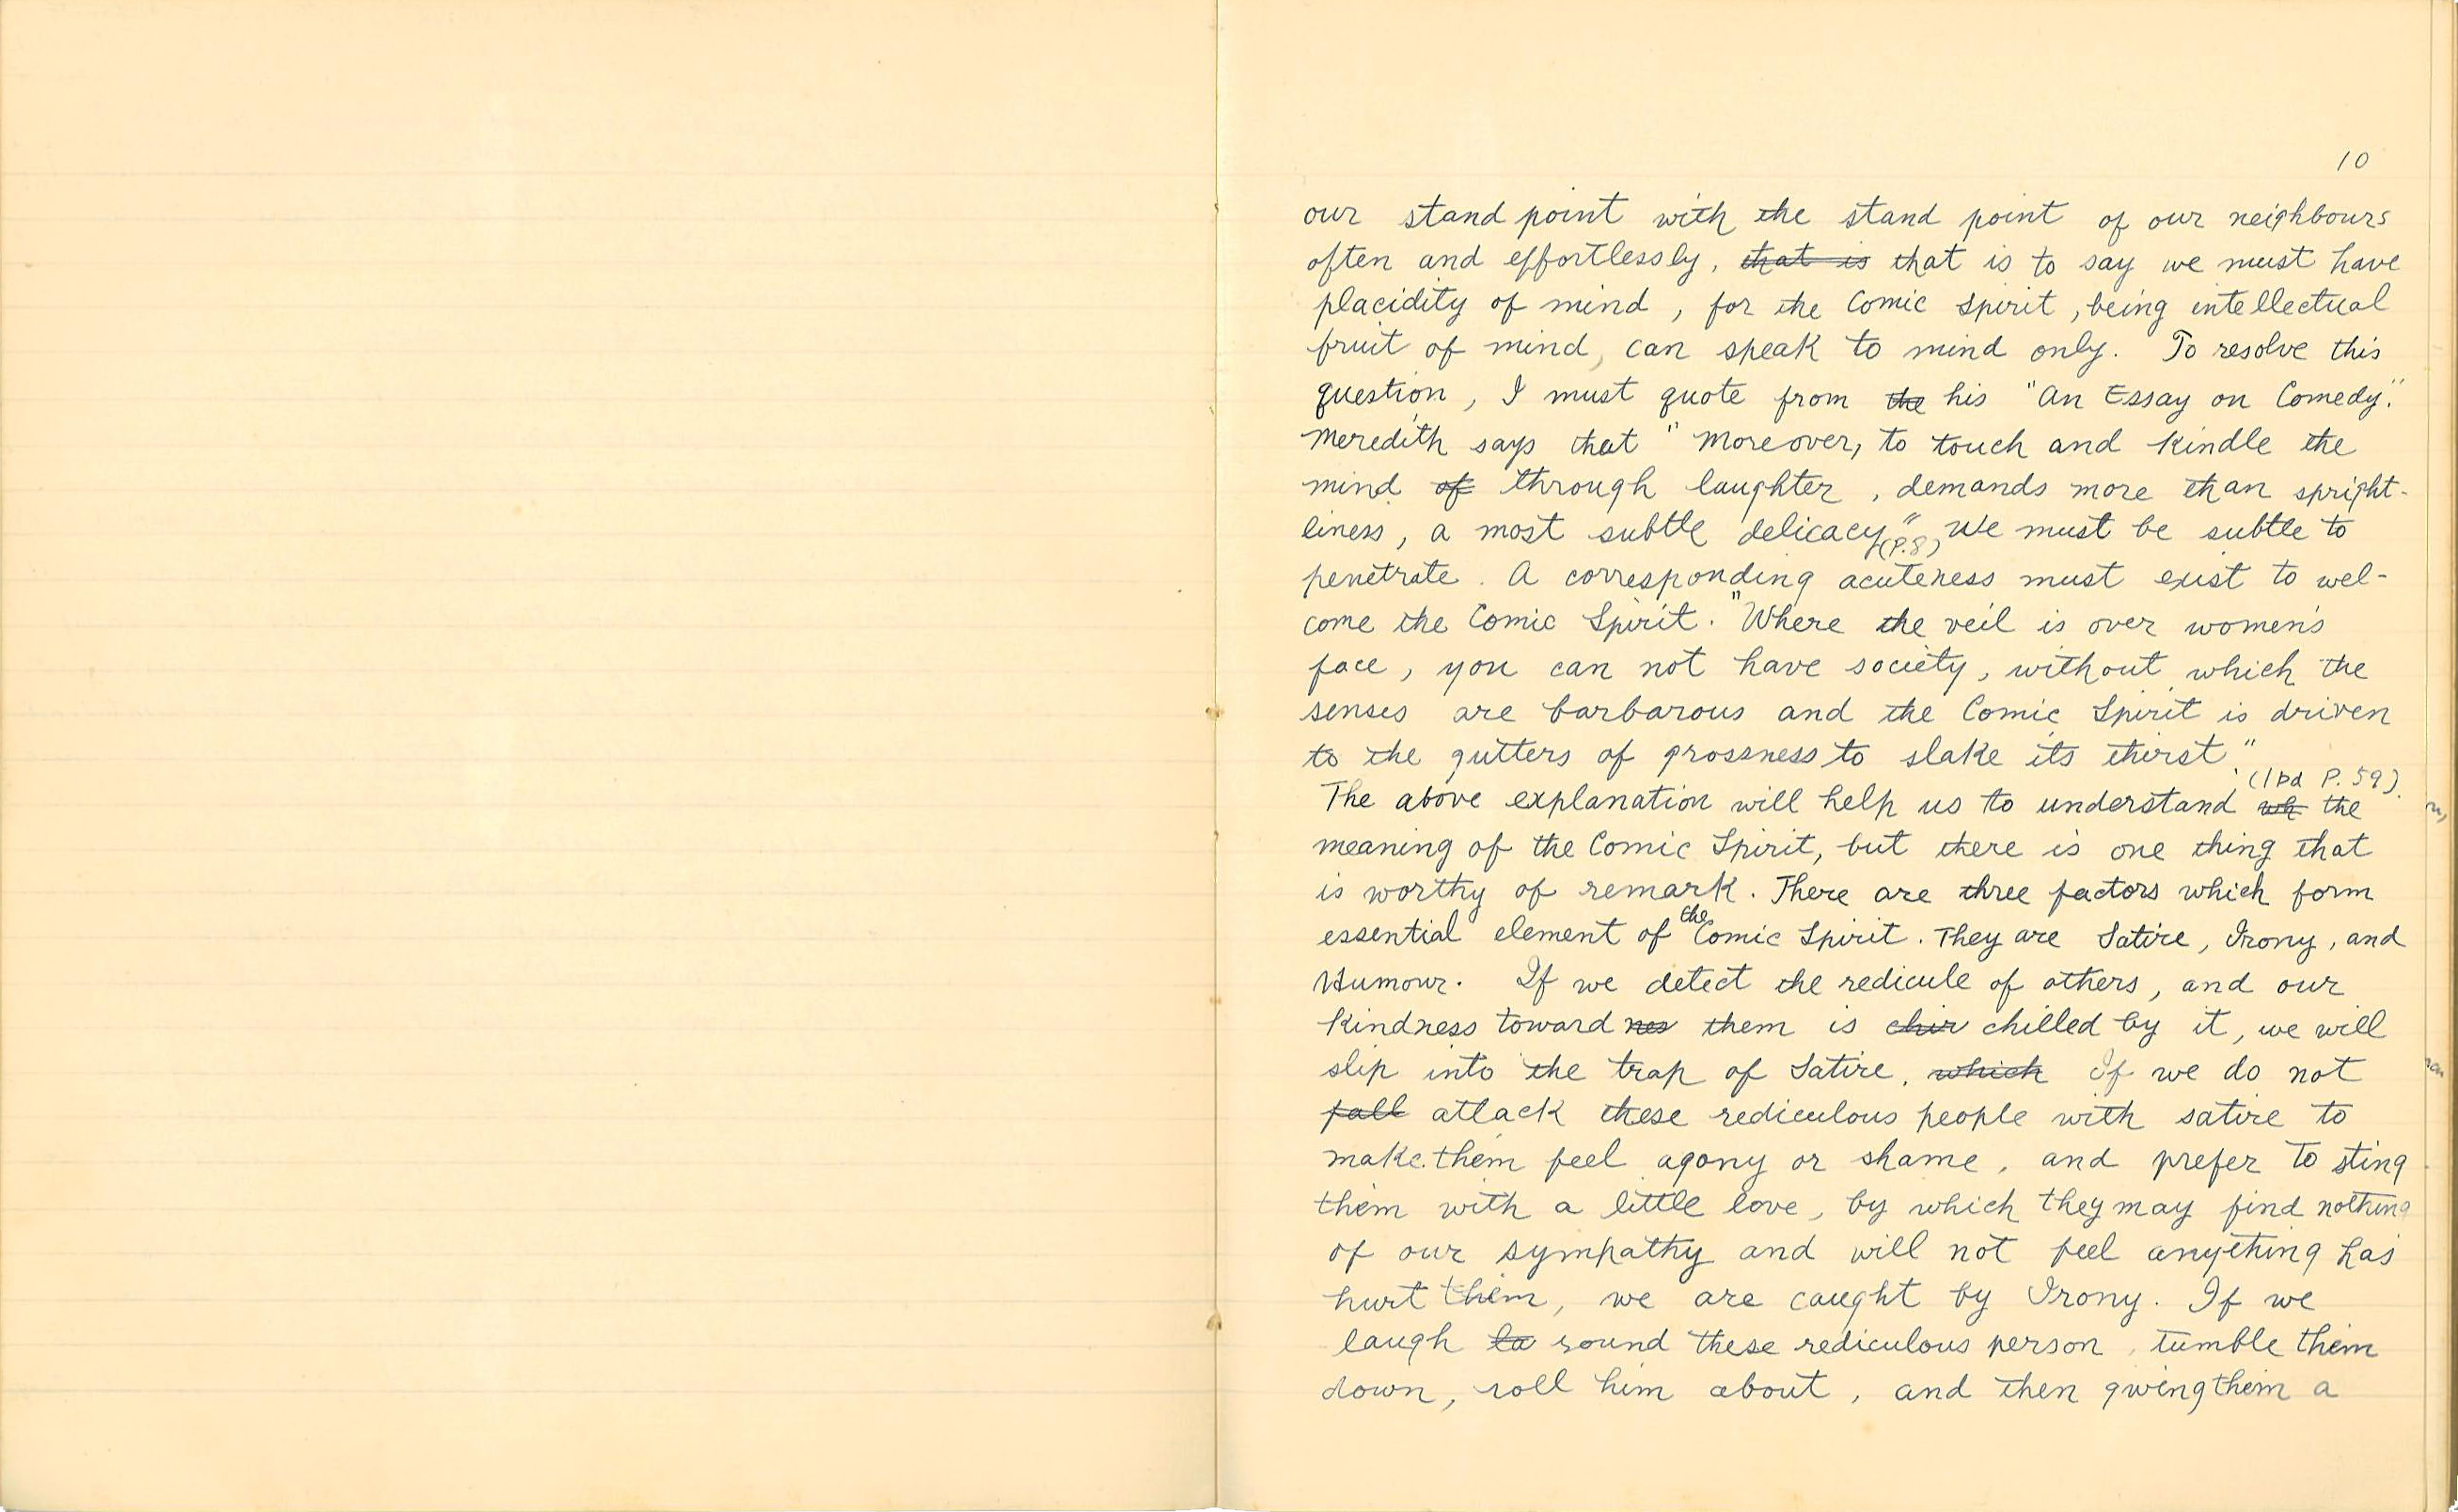 10
our stand point with the stand point of our neighbours
often and effortlessly, that is that is to say we must have
placidity of mind, for the Comic Spirit, being intellectual
fruit of mind, can speak to mind only. To resolve this
question, I must quote from the his "An Essay on Comedy."
Meredith says that "Moreover, to touch and kindle the
mind of through laughter, demands more than spright-
liness, a most subtle delicacy" (P.8) We must be subtle to
penetrate. A corresponding acuteness must exist to wel-
come the Comic Spirit. "Where the veil is over women's
face, you can not have society, without which the
senses are barbarous and the Comic Spirit is driven
to the gutters of grossness to slake its thirst."
(Ibd P. 59).
The above explanation will help us to understand wh the
meaning of the Comic Spirit, but there is one thing that
is worthy of remark. There are three factors which form
essential element of the Comic Spirit. They are Satire, Irony, and
Humour. If we detect the redicule of others, and our
kindness toward nes them is chir chilled by it, we will
slip into the trap of Satire, which If we do not
fall attack these rediculous people with satire to
make them feel agony or shame, and prefer to sting
them with a little love, by which they may find nothing
of our sympathy and will not feel anything has
hurt them, we are caught by Irony. If we
laugh la round these rediculous person, tumble them
down, roll him about, and then giving them a